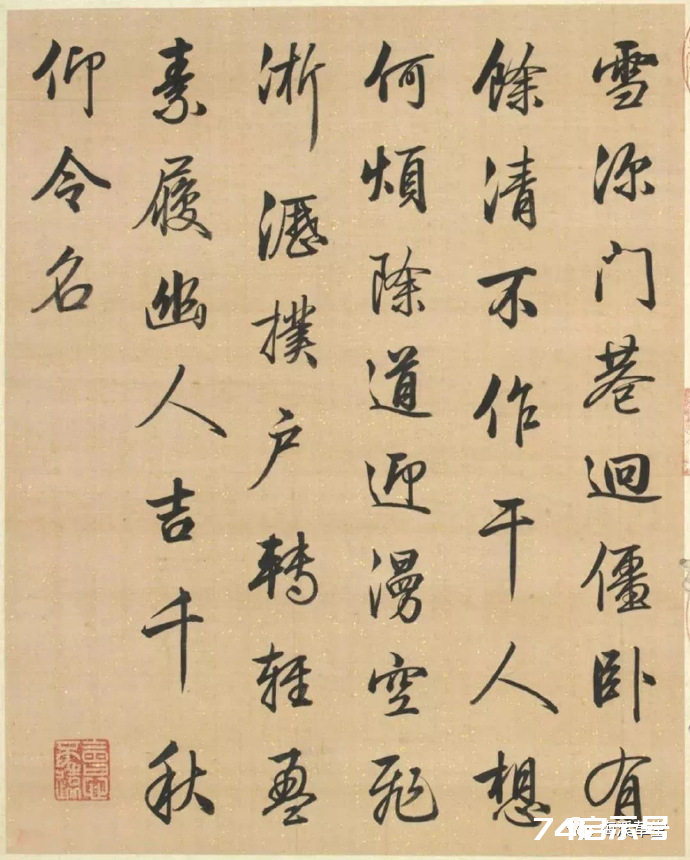 雪深門巷迥僵卧有
餘清不作干人想
何煩除道迎漫空飛
淅瀝撲户轉輕盈
素履幽人吉千秋
仰令名
745启示号